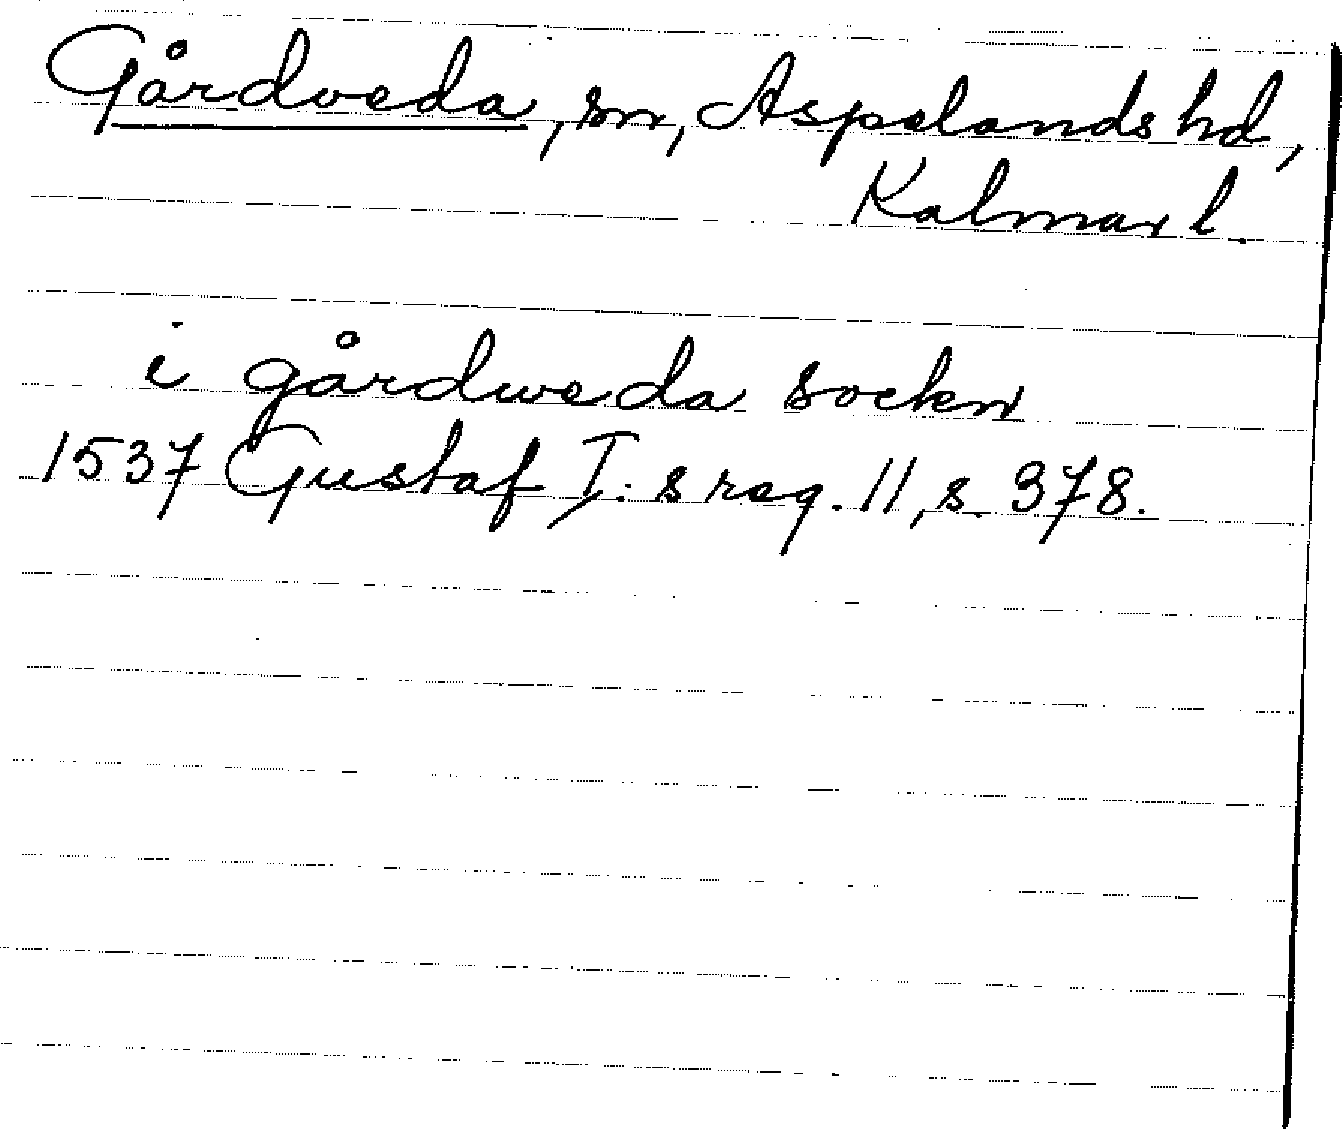 Gårdveda, sn, Aspelands hd,
Kalmar l.
i gårdweda sockn
1537 Gustaf I:s reg. 11, s. 378.